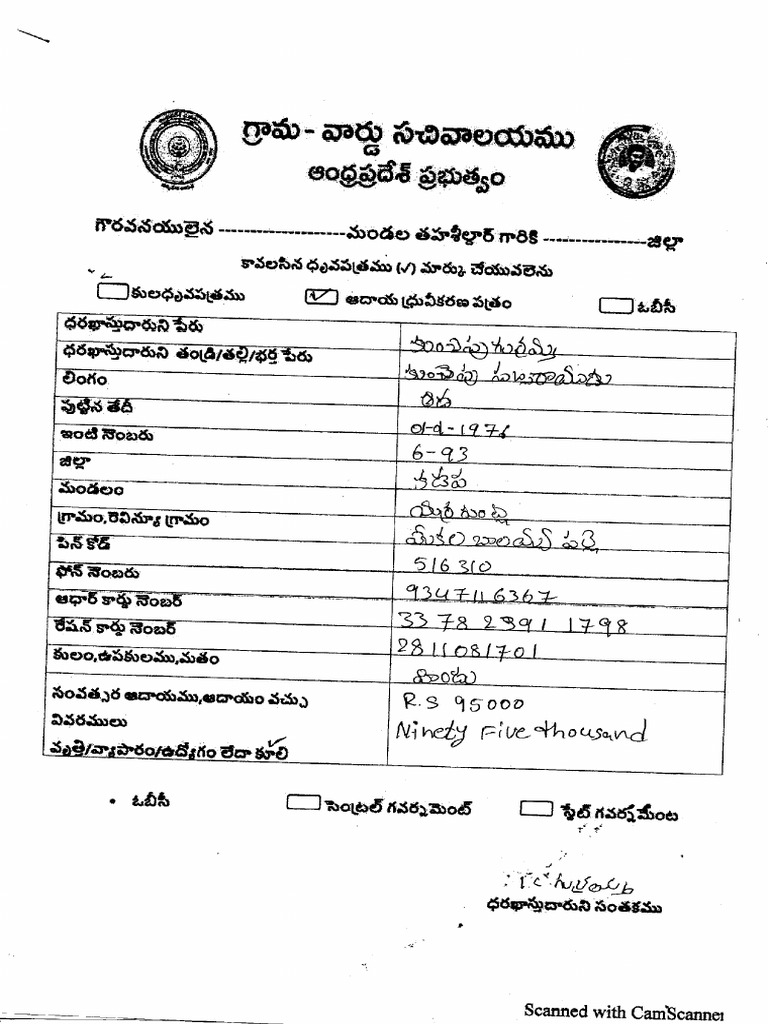 గ్రామ - వార్డు సచివాలయము
ఆంధ్రప్రదేశ్ ప్రభుత్వం
గౌరవనయులైన -------------------- మండల తహశీల్దార్ గారికి ----------------- జిల్లా
కావలసిన ధృవపత్రము (✓) మార్కు చేయువలెను
కులధృవపత్రము ✓ ఆదాయ ధ్రువీకరణ పత్రం ఓబీసీ
ధరఖాస్తుదారుని పేరు
ధరఖాస్తుదారుని తండ్రి/తల్లి/భర్త పేరు
లింగం
పుట్టిన తేదీ
ఇంటి నెంబరు 6-93
జిల్లా కడప
మండలం
గ్రామం,రెవిన్యూ గ్రామం
పిన్ కోడ్ 516310
ఫోన్ నెంబరు 9347116367
ఆధార్ కార్డు నెంబర్ 3378 2391 1798
రేషన్ కార్డు నెంబర్ 2811081701
కులం,ఉపకులము,మతం హిందు
సంవత్సర ఆదాయము,ఆదాయం వచ్చు R.S 95000
వివరములు Ninety Five thousand
వృత్తి/వ్యాపారం/ఉద్యోగం లేదా కూలి ✓
• ఓబీసీ సెంట్రల్ గవర్నమెంట్ స్టేట్ గవర్నమేంట
ధరఖాస్తుదారుని సంతకము
Scanned with CamScanner